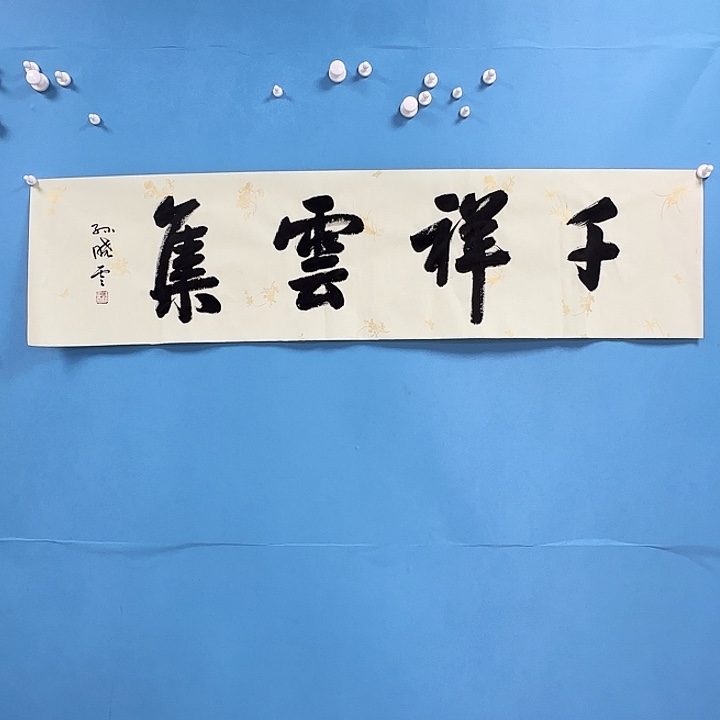 千祥雲集
孙晓云